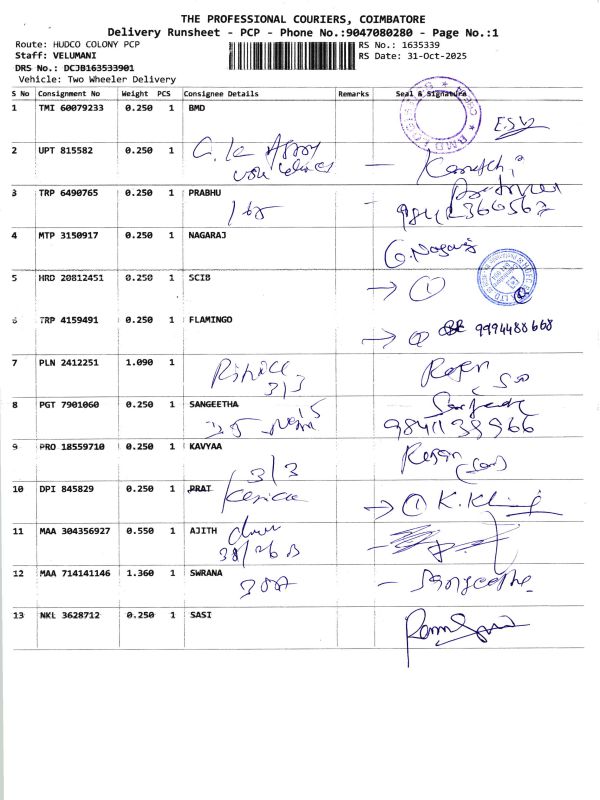 THE PROFESSIONAL COURIERS, COIMBATORE
Delivery Runsheet - PCP - Phone No.:9047080280 - Page No.:1
Route: HUDCO COLONY PCP RS No.: 1635339
Staff: VELUMANI RS Date: 31-Oct-2025
DRS No.: DCJB163533901
Vehicle: Two Wheeler Delivery
S No Consignment No Weight PCS Consignee Details Remarks Seal & Signature
1 TMI 60079233 0.250 1 BMD
2 UPT 815582 0.250 1
3 TRP 6490765 0.250 1 PRABHU
4 MTP 3150917 0.250 1 NAGARAJ G. Nagaraj
5 HRD 20812451 0.250 1 SCIB 1
6 TRP 4159491 0.250 1 FLAMINGO 9994488668
7 PLN 2412251 1.090 1
3/3
8 PGT 7901060 0.250 1 SANGEETHA
9 PRO 18559710 0.250 1 KAVYAA
3/3
10 DPI 845829 0.250 1 PRAT 1
11 MAA 304356927 0.550 1 AJITH
12 MAA 714141146 1.360 1 SWRANA
13 NKL 3628712 0.250 1 SASI